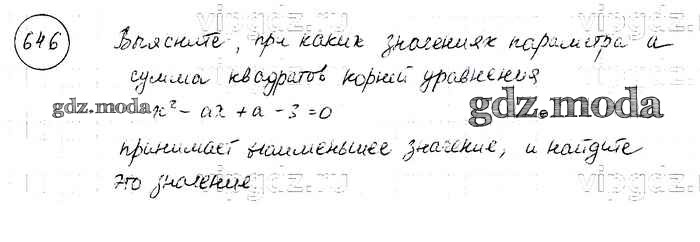 646 Выясните, при каких значениях параметра а
сумма квадратов корней уравнения
x² - ax + a - 3 = 0
принимает наименьшее значение, и найдите
это значение
gdz.moda
gdz.moda
vipgdz.ru
vipgdz.ru
vipgdz.ru
vipgdz.ru